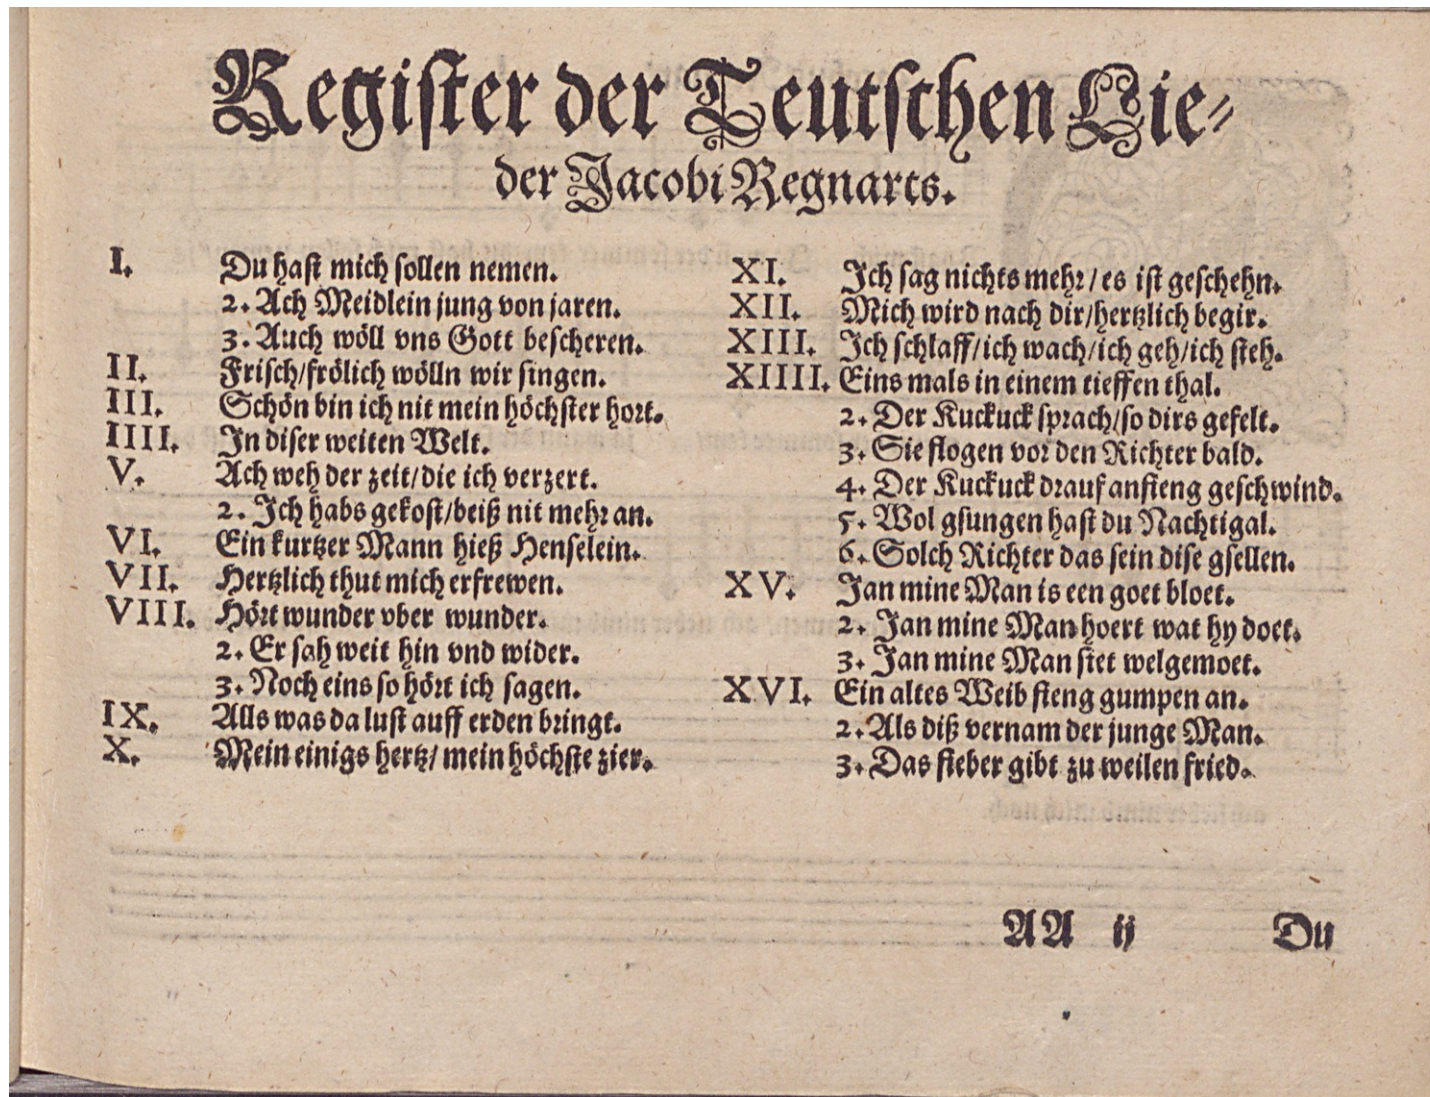 Register der Teutschen Lie⸗
der Jacobi Regnarts.
I. Du hast mich sollen nemen.
2. Ach Meidlein jung von jaren.
3. Auch wöll vns Gott bescheren.
II. Frisch/frölich wölln wir singen.
III. Schön bin ich nit mein höchster hort.
IIII. In diser weiten Welt.
V. Ach weh der zeit/die ich verzert.
2. Ich habs gekost/beiß nit mehr an.
VI. Ein kurtzer Mann hieß Henselein.
VII. Hertzlich thut mich erfrewen.
VIII. Hört wunder vber wunder.
2. Er sah weit hin vnd wider.
3. Noch eins so hört ich sagen.
IX. Alls was da lust auff erden bringt.
X. Mein einigs hertz/ mein höchste zier.
XI. Ich sag nichts mehr/ es ist geschehn.
XII. Mich wird nach dir/hertzlich begir.
XIII. Ich schlaff/ich wach/ich geh/ich steh.
XIIII. Eins mals in einem tieffen thal.
2. Der Kuckuck sprach/so dirs gefelt.
3. Sie flogen vor den Richter bald.
4. Der Kuckuck drauf anfieng geschwind.
5. Wol gsungen hast du Nachtigal.
6. Solch Richter das sein dise gsellen.
XV. Jan mine Man is een goet bloet.
2. Jan mine Man hoert wat hy doet.
3. Jan mine Man stet welgemoet.
XVI. Ein altes Weib fieng gumpen an.
2. Als diß vernam der junge Man.
3. Das fieber gibt zu weilen fried.
AA ij Du